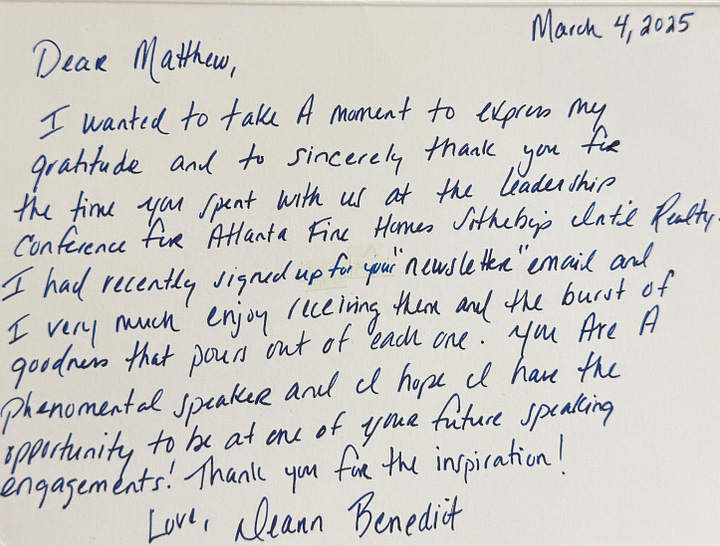 March 4, 2025
Dear Matthew,
I wanted to take A moment to express my
gratitude and to sincerely thank you for
the time you spent with us at the Leadership
Conference for Atlanta Fine Homes Sothebys Int'l Realty.
I had recently signed up for your "newsletter" email and
I very much enjoy receiving them and the burst of
goodness that pours out of each one. You Are A
phenomental speaker and I hope I have the
opportunity to be at one of your future speaking
engagements! Thank you for the inspiration!
Love, Deann Benedict